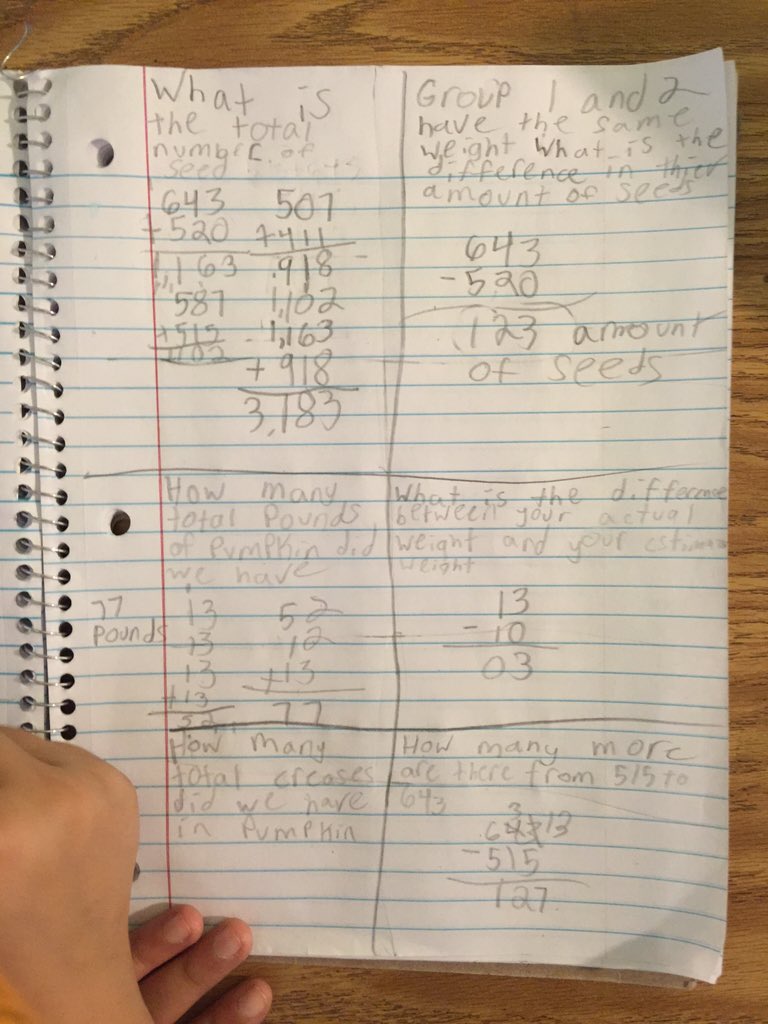 What is
the total
number of
seed
643 507
+520 +411
1,163 918
587 1,102
+515 1,163
1102 + 918
3,183
Group 1 and 2
have the same
weight What is the
difference in thier
amount of seeds
643
-520
123 amount
of seeds
How many
total Pounds
of Pumpkin did
we have
77
Pounds
13 52
13 12
13 +13
+13 77
52
What is the difference
between your actual
weight and your estimate
weight
13
-10
03
How many
total creases
did we have
in Pumpkin
How many more
are there from 515 to
643
3 13
643
-515
127